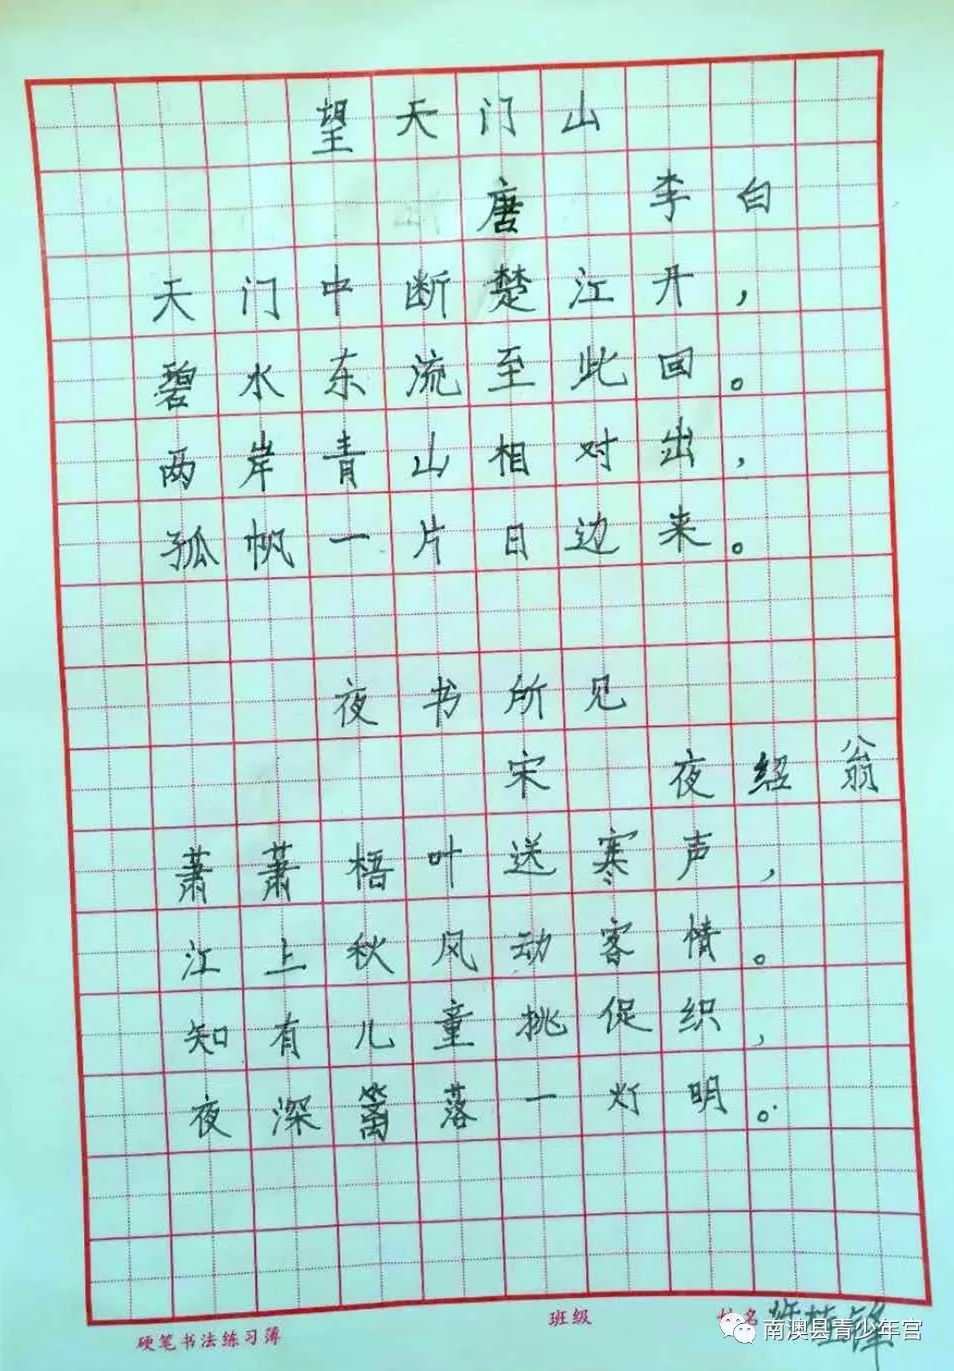 望天门山
唐 李白
天门中断楚江开，
碧水东流至此回。
两岸青山相对出，
孤帆一片日边来。
夜书所见
宋 夜绍翁
萧萧梧叶送寒声，
江上秋风动客情。
知有儿童挑促织，
夜深篱落一灯明。
硬笔书法练习簿 班级 名
南澳县青少年宫